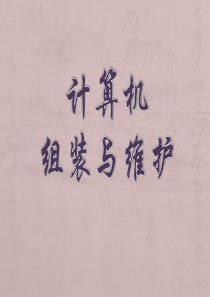 计算机
组装与维护